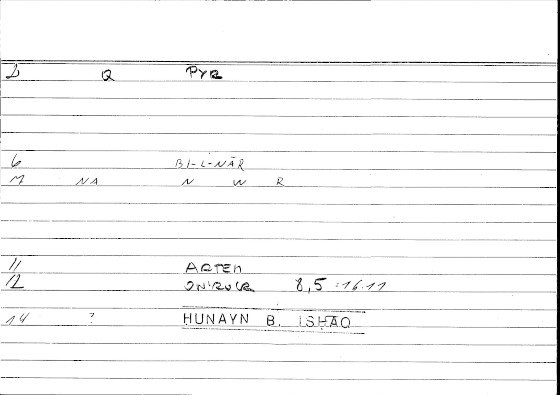 D Q PYR
6 BI-L-NĀR
M NA N W R
11 ARTEM
12 ONIROCR 8,5 :16.11
14 ? HUNAYN B. ISHAQ